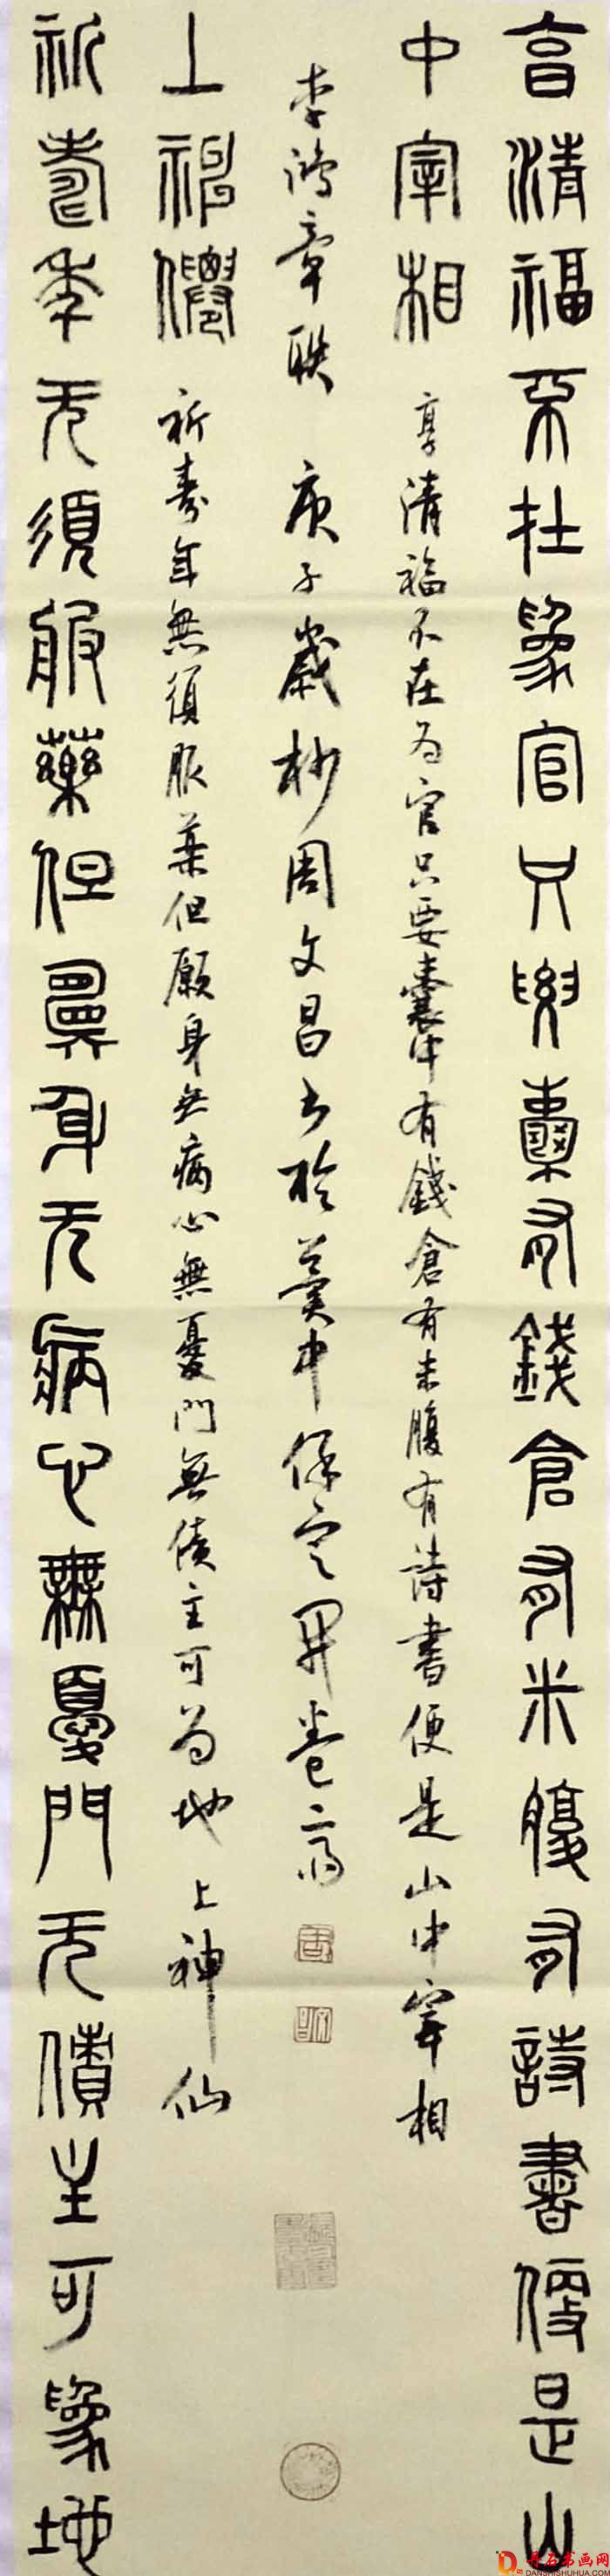 享清福不在為官只要囊有錢倉有米腹有詩書便是山
中宰相
享清福不在为官只要囊中有錢倉有米腹有詩書便是山中宰相
李鴻章联 庚子歲杪周文昌书於冀中保定开卷斋
上神僊
祈壽年無須服藥但願身無病心無憂門無債主可为地上神仙
祈壽年无須服藥但願身无病心無憂門无債主可為地
丹石书画网
DANSHISHUHUA.COM